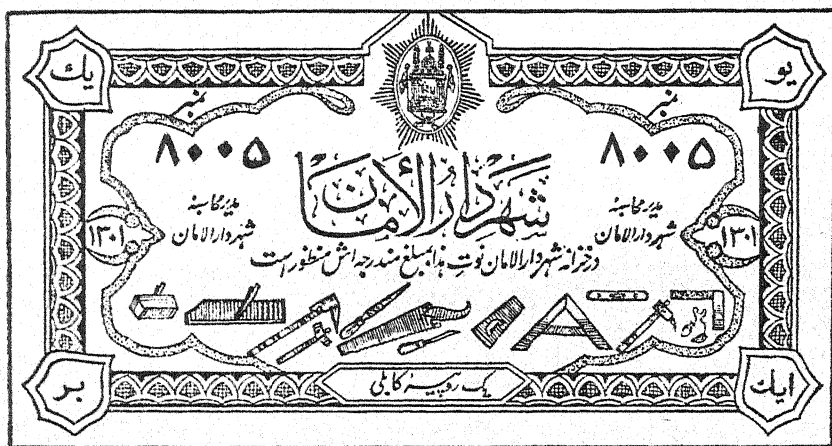 یو
یك
نمبر
نمبر
۸۰۰۵
۸۰۰۵
شهر دارالأمان
مدیر محاسبه
شهر دارالامان
مدیر محاسبه
شهر دارالامان
۱۳۰۱
۱۳۰۱
در خزانه شهر دارالامان نوت هذا بمبلغ مندرجه اش منظور است
ایك
یک روپیهٔ کابلی
بر